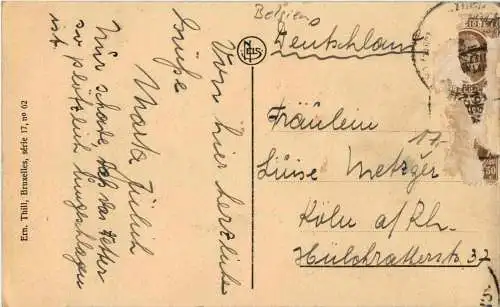 Belgien
Deutschland
Fräulein
Luise Metzger
Köln a/Rh.
Hülchratherstr. 37
Von hier herzliche
Grüße
Marta Jülich
Nur schade, daß das Wetter
so plötzlich umgeschlagen
ist.
NELS
Ern. Thill, Bruxelles, série 17, no 62
50